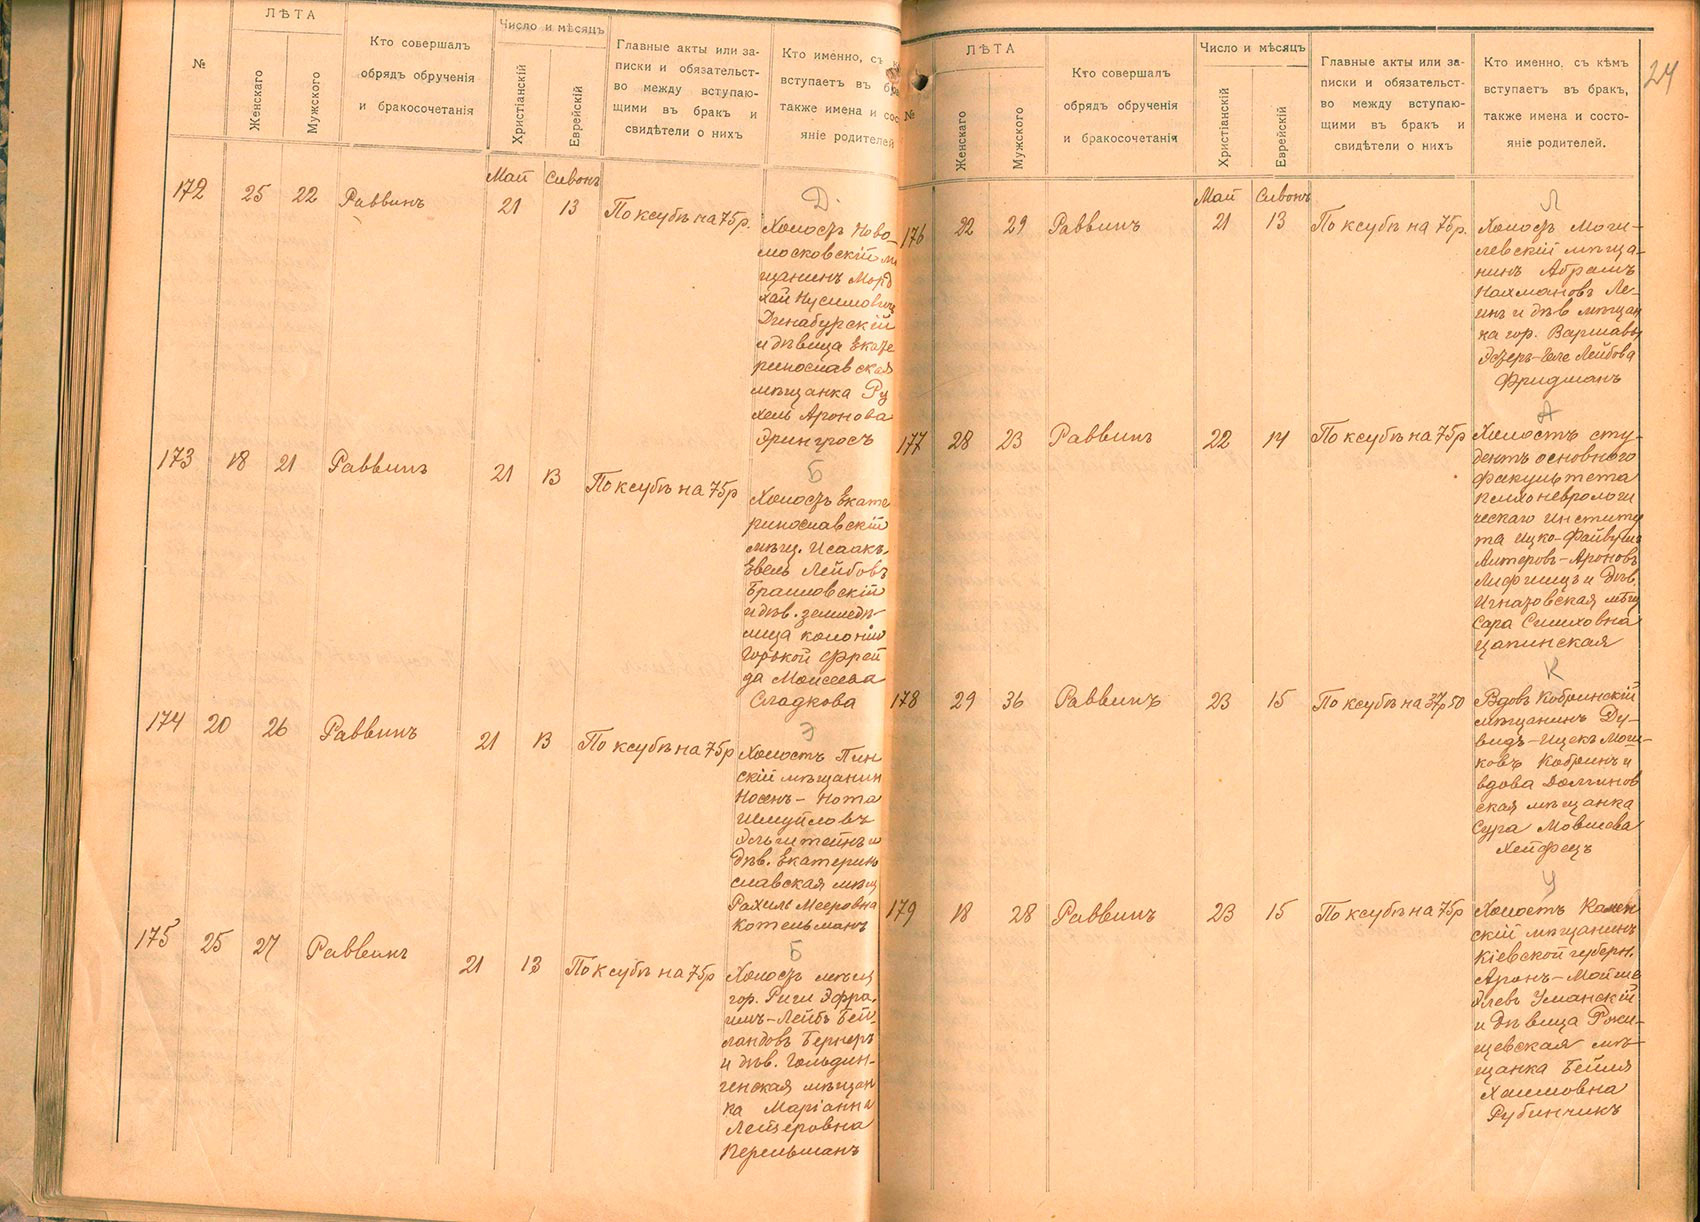 №
ЛѢТА
Женскаго
Мужского
Кто совершалъ
обрядъ обрученія
и бракосочетанія
Число и мѣсяцъ
Христіанскій
Еврейскій
Главные акты или за-
писки и обязательст-
во между вступаю-
щими въ бракъ и
свидѣтели о нихъ
Кто именно, съ
вступаетъ въ
также имена и
яніе родителей
172 25 22 Раввинъ
Май Сивонъ
21 13 По ксубѣ на 75р.
Д.
Холостъ Ново-
московскій
щанинъ Морд
хай Нусимовичъ
Динабурскій
и дѣвица Екате
ринославская
мѣщанка Ру
хель Аронова
Эрингросъ
173 18 21 Раввинъ 21 13 По ксубѣ на 75р
Б
Холостъ Екате
ринославскій
мѣщ. Исаакъ-
Звель Лейбовъ
Браиловскій
и дѣв. земледѣ-
лица колоніи
Горькой Фрей
да Моисеева
Сладкова
174 20 26 Раввинъ 21 13 По ксубѣ на 75р
Э
Холостъ Пин
скій мѣщанин
Носенъ-Нота
Шмуйловъ
Эльштейнъ и
дѣв. Екатерин
славская мѣщ
Рахиль Мееровна
Котельманъ
175 25 27 Раввинъ 21 13 По ксубѣ на 75р
Б
Холостъ мѣщ
гор. Риги Эфра-
имъ-Лейбъ Бей-
мандовъ Бернеръ
и дѣв. Гольдин-
генская мѣщан
ка Маріанна
Лейзеровна
Перельманъ
24
№
ЛѢТА
Женскаго
Мужского
Кто совершалъ
обрядъ обрученія
и бракосочетанія
Число и мѣсяцъ
Христіанскій
Еврейскій
Главные акты или за-
писки и обязательст-
во между вступаю-
щими въ бракъ и
свидѣтели о нихъ
Кто именно, съ кѣмъ
вступаетъ въ бракъ,
также имена и состо-
яніе родителей.
176 22 29 Раввинъ
Май Сивонъ
21 13 По ксубѣ на 75р.
Л
Холостъ Моги-
левскій мѣща-
нинъ Абрамъ
Нахмановъ Ле-
инъ и дѣв мѣщан
ка гор. Варшавы
Эстеръ-Геле Лейбова
Фридманъ
177 28 23 Раввинъ 22 14 По ксубѣ на 75р
А
Холостъ сту-
дентъ основного
факультета
психоневрологи
ческаго Институ
та Ицко-Файвуш
Алтеровъ-Ароновъ
Лифшицъ и дѣв.
Игнатовская мѣщ
Сара Симховна
Цапинская
178 29 36 Раввинъ 23 15 По ксубѣ на 37р50
К
Вдовъ Кобринскій
мѣщанинъ Ду-
видъ-Ицекъ Мош-
ковъ Кобринъ и
вдова Долгинов
ская мѣщанка
Сура Мовшева
Хейфецъ
179 18 28 Раввинъ 23 15 По ксубѣ на 75р
У
Холостъ Камен
скій мѣщанинъ
Кіевской губерн.
Аронъ-Мойше
Элевъ Уманскій
и дѣвица Ржи-
щевская мѣ-
щанка Бейля
Хаимовна
Рубинчикъ